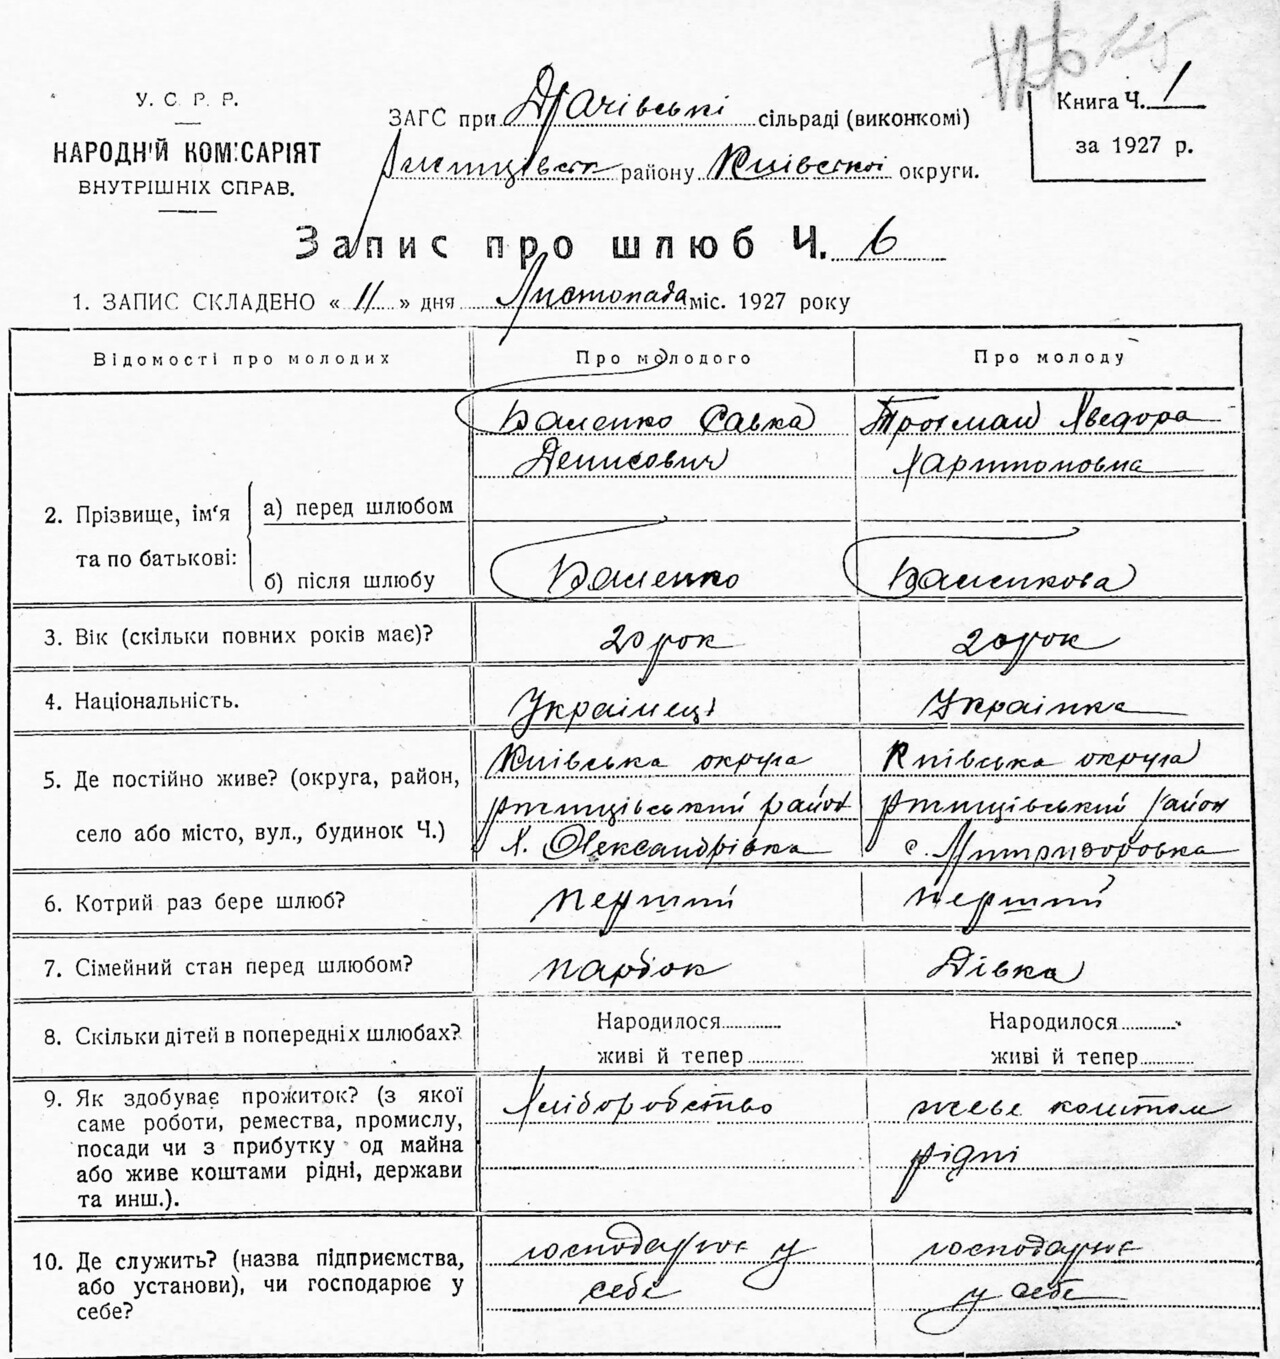 126 125
У. С. Р. Р.
НАРОДНІЙ КОМІСАРІЯТ
ВНУТРІШНІХ СПРАВ.
ЗАГС при Драчівські сільраді (виконкомі)
Ржищівськ району Київської округи.
Книга Ч. 1
за 1927 р.
Запис про шлюб Ч. 6
1. ЗАПИС СКЛАДЕНО « 11 » дня Листопада міс. 1927 року
Відомості про молодих Про молодого Про молоду
2. Прізвище, ім'я та по батькові:
а) перед шлюбом
Баленко Савка Денисович
Явдора Харитоновна
б) після шлюбу
Баленко
Баленкова
3. Вік (скільки повних років має)? 20 рок 20 рок
4. Національність. Украінец Украінка
5. Де постійно живе? (округа, район,
село або місто, вул., будинок Ч.)
Київська округа
ржищівський район
Х. Олександрівка
Київська округа
ржищівський район
с.
6. Котрий раз бере шлюб? перший перший
7. Сімейний стан перед шлюбом? парубок Дівка
8. Скільки дітей в попередніх шлюбах?
Народилося
живі й тепер
Народилося
живі й тепер
9. Як здобуває прожиток? (з якої
саме роботи, ремества, промислу,
посади чи з прибутку од майна
або живе коштами рідні, держави
та инш.).
Хліборобство
живе коштом
рідні
10. Де служить? (назва підприємства,
або установи), чи господарює у
себе?
господарює у
себе
господарює
у себе